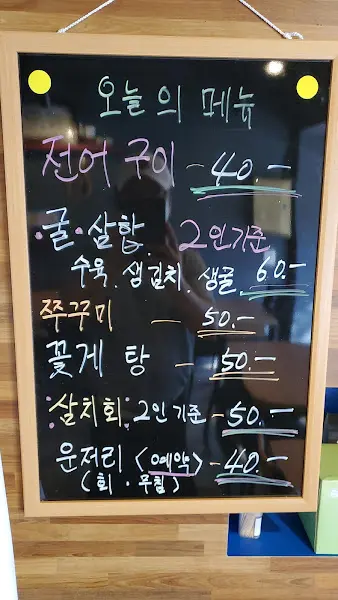 오늘의 메뉴
전어 구이 - 40.-
·굴·삼합. 2인기준
수육. 생김치. 생굴. 60.-
쭈꾸미 - 50.-
꽃게 탕 - 50.-
살치회 2인기준 - 50.-
운저리 <예약> - 40.-
(회·무침)